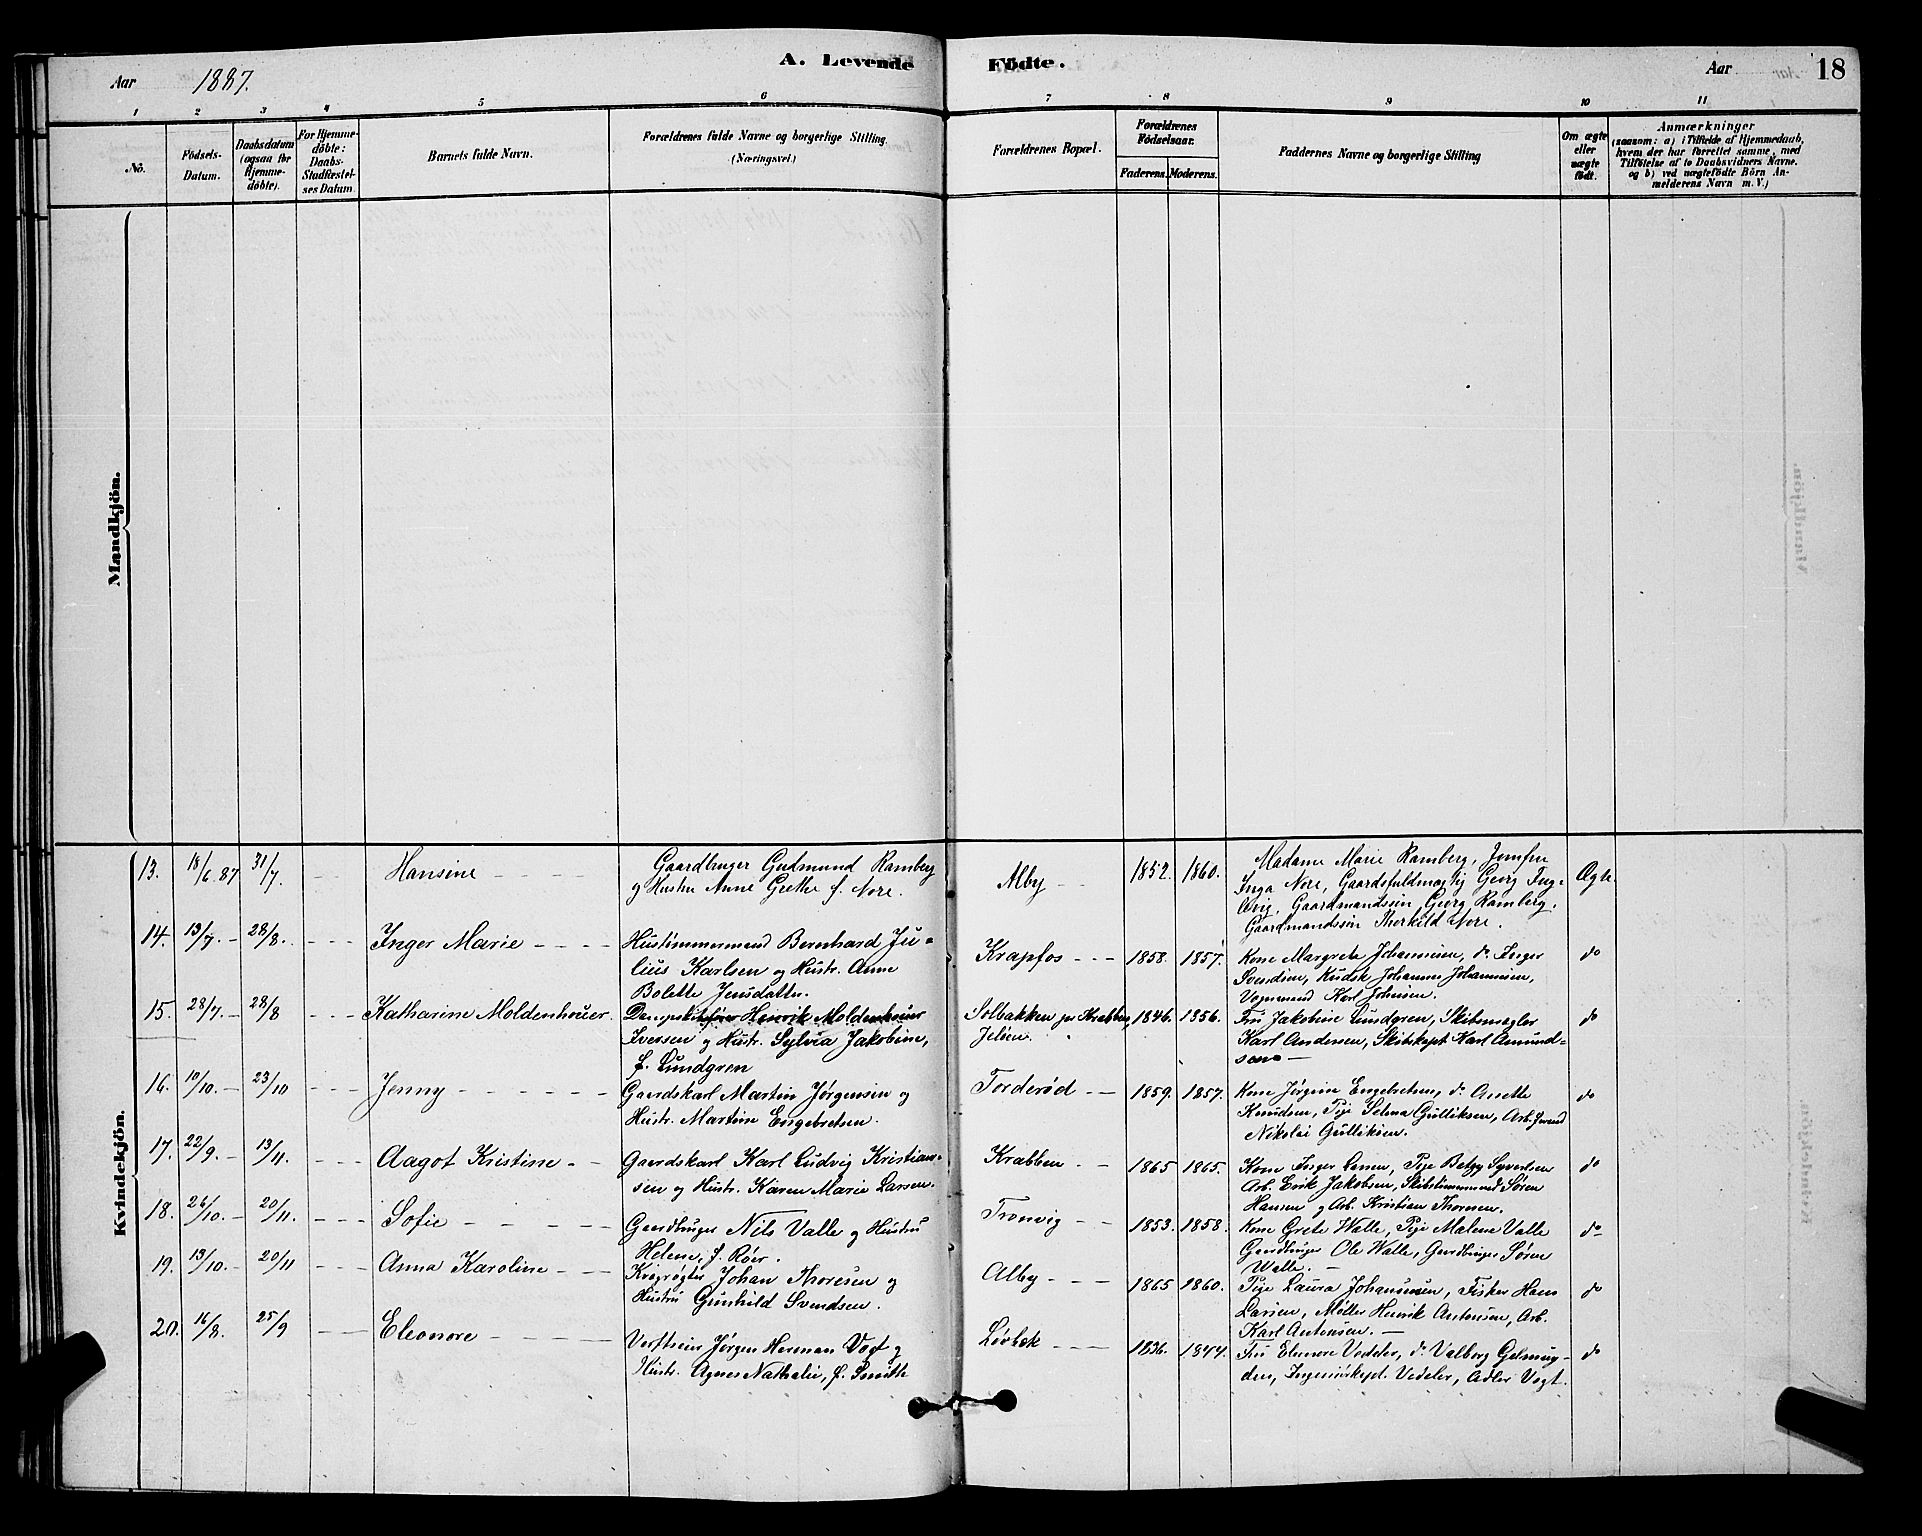 A. Levende Födte.
Aar 1887.
Aar
18
1 2 3 4 5 6 7 8 9 10 11
No.
Födsels-
Datum.
Daabsdatum
(ogsaa for
Hjemme-
döbte).
For Hjemme-
döbte:
Daabs-
Stadfæstel-
ses Datum
Barnets fulde Navn.
Forældrenes fulde Navne og borgerlige Stilling.
(Næringsvei.)
Forældrenes Bopæl.
Forældrenes
Födselsaar.
Faderens. Moderens.
Faddernes Navne og borgerlige Stilling
Om ægte
eller
uægte
födt.
Anmærkninger
(saasom: a) i Tilfælde af Hjemmedaab,
hvem der har forrettet samme, med
Tilföielse af to Daabsvidners Navne.
og b) ved uægtefödte Börn An-
melderens Navn m. V.)
Mandkjön.
Kvindekjön.
13. 18/6 87 31/7. Hansine
Gaardbruger Gudmund Ramberg
og Hustru Anne Grethe f. Nore.
Alby 1852. 1860.
Madame Marie Ramberg, Jomfru
Inga Nore, Gaardsfuldmægtig Georg
Gaardmandssøn Georg Ramberg.
Gaardmandssøn Thorkild Nore.
Ægte.
14. 13/7. 28/8. Inger Marie
Hustømmermand Bernhard Ju-
lius Karlsen og Hustr. Anne
Bolette Jensdatter.
Krapfos 1858. 1857.
Kone Margrete Johannesen, do Inger
Svendsen, Kudsk Johannes Johannesen,
Vognmand Karl Johnsen.
do
15. 28/7. 28/8 Katharine Moldenhouer.
Dampskibsfører Henrik Moldenhouer
Iversen og Hustr. Sylvia Jakobine,
f. Lundgren
Solbakken pr Krabben,
Jeløen.
1846. 1856.
Fru Jakobine Lundgren, Skibsmægler
Karl Andersen, Skibskapt. Karl Amund-
sen
do
16. 10/10. 23/10 Jenny
Gaardskarl Martin Jørgensen og
Hustr. Martine Engebretsen.
Torderød 1859. 1857.
Kone Jørgine Engebretsen, do Anette
Knudsen, Pige Selma Gulliksen, Arb.
Nikolai Gulliksen.
do
17. 22/9. 13/11. Aagot Kristine
Gaardskarl Karl Ludvig Kristian-
sen og Hustr. Karen Marie Larsen.
Krabben 1865 1865.
Kone Inger Larsen, Pige Betzy Syvertsen
Arb. Erik Jakobsen, Skibstømmermand Søren
Hansen og Arb. Kristian Thoresen.
do
18. 26/10. 20/11. Sofie
Gaardbruger Nils Valle og Hustru
Helene, f. Röer.
Tronvig 1853. 1858.
Kone Grete Walle, Pige Malene Valle
Gaardbruger Ole Walle, Gaardbruger Søren
Walle.
do
19. 13/10. 20/11 Anna Karoline
Johan Thoresen og
Hustru Gunhild Svendsen.
Alby 1865 1860.
Pige Laura Johannesen, Fisker Hans
Larsen, Møller Henrik Antonsen, Arb.
Karl Antonsen.
do
20. 16/8. 25/9 Eleonore
Jørgen Herman Vogt og
Hustr. Agnes Nathalie, f. Smith
Løvbæk 1836. 1844.
Fru Elenore Vedeler, do Valborg
Ingeniørkapt. Vedeler, Adler Vogt.
do